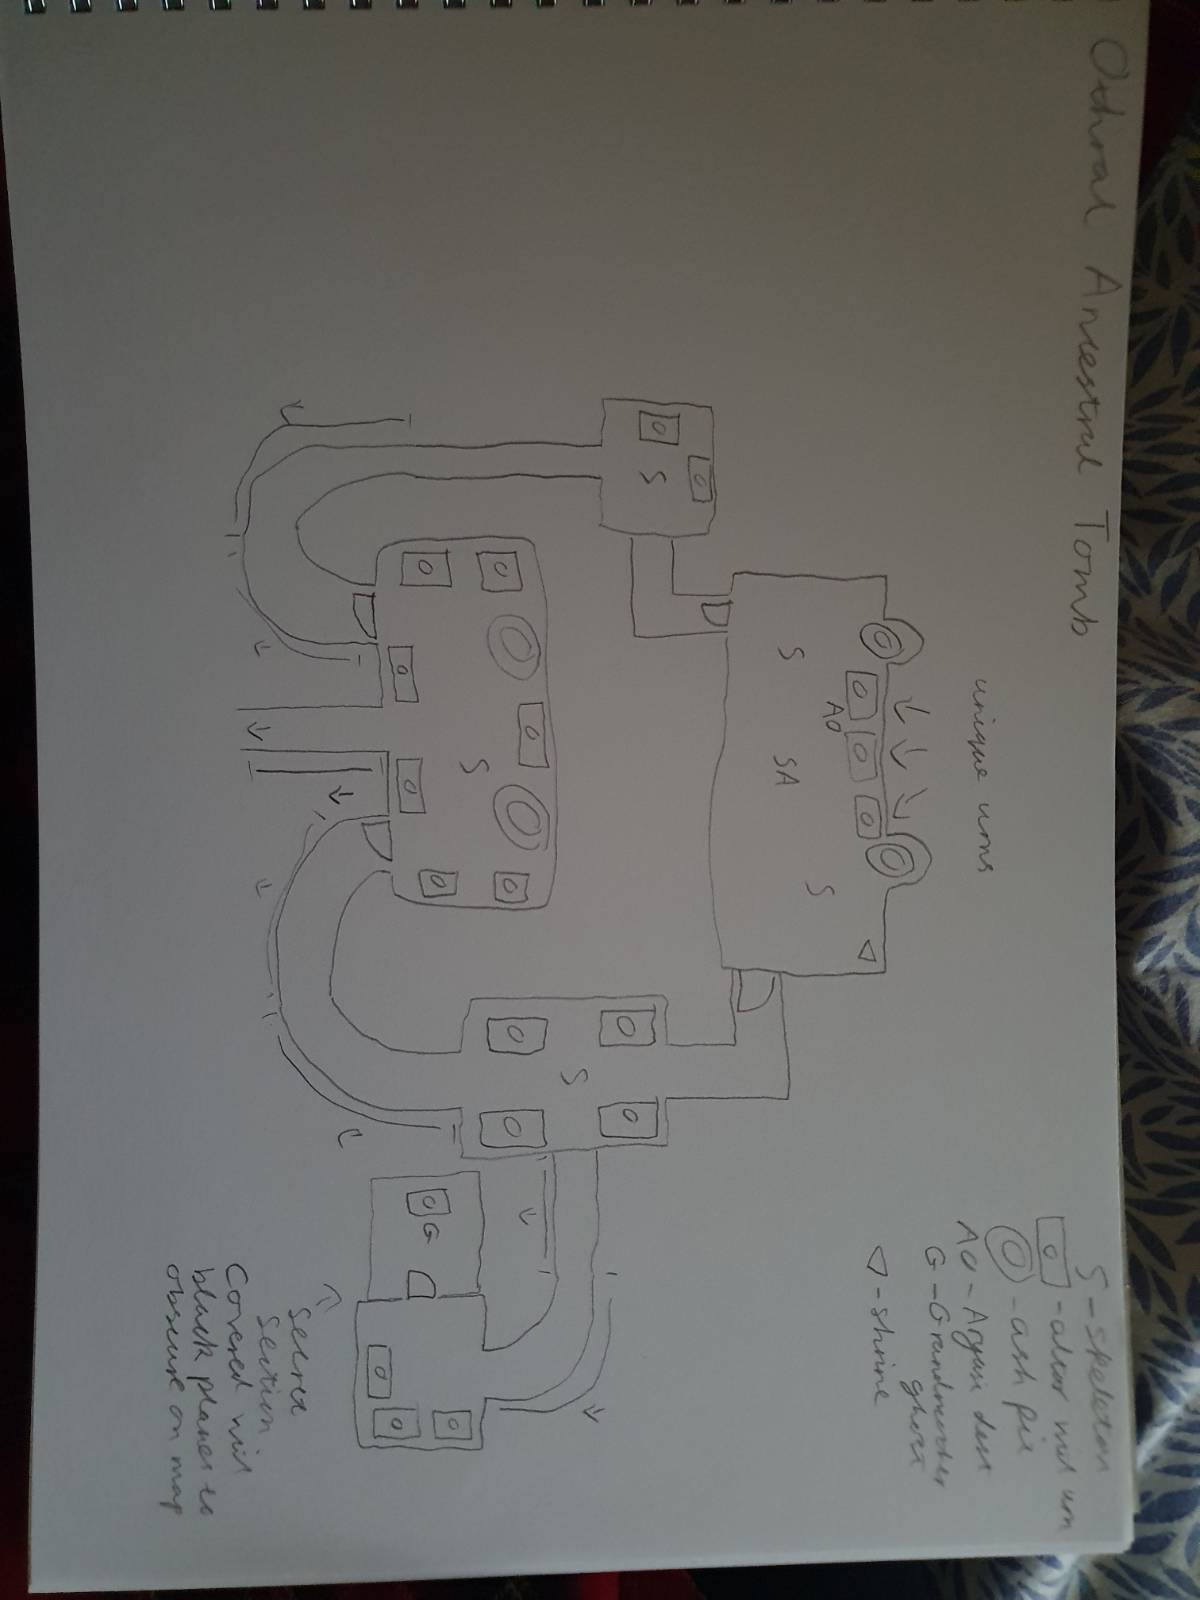 Othral Ancestral Tomb
S - skeleton
- altar with urn
- ash pit
AO -
G - Grandmother
ghost
- shrine
unique urns
AO
S
S
SA
S
S
S
G
secret
section.
Covered with
black planes to
obscure on map